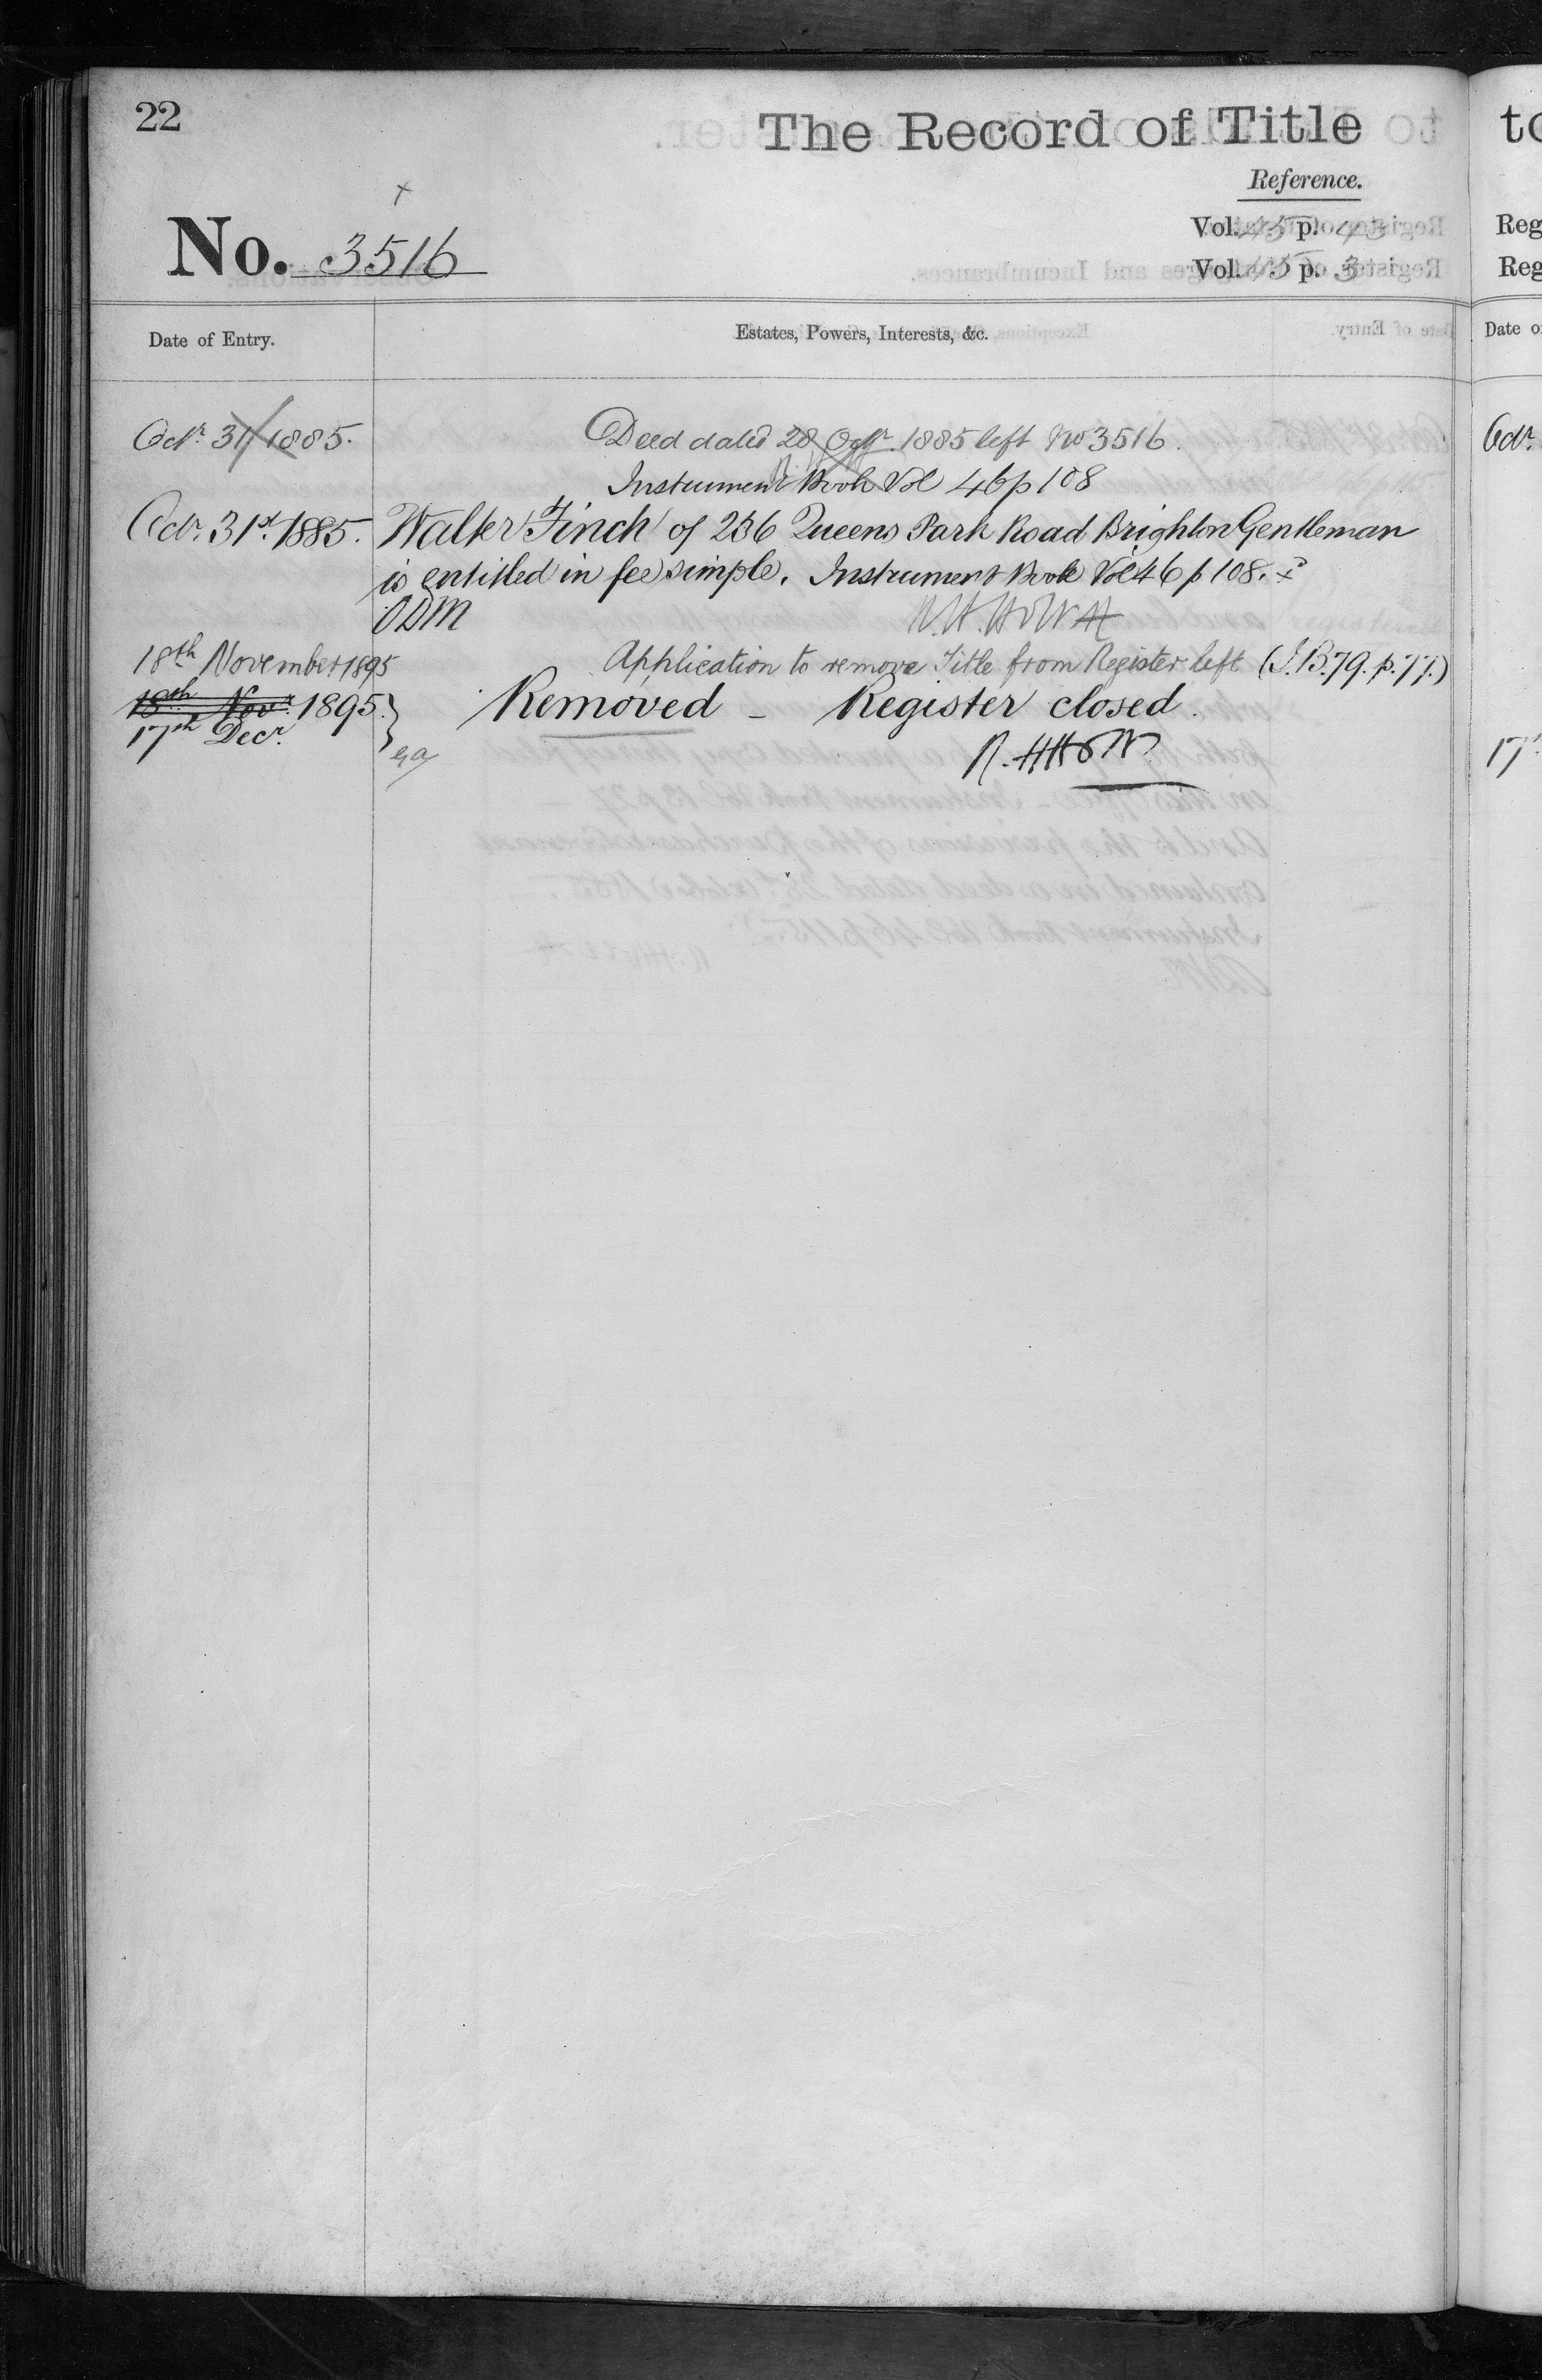 22
The Record of Title
Reference.
Vol. 45 p. 43
Vol. 45 p. 3
No. 3516
Date of Entry.
Estates, Powers, Interests, &c.
Octr. 31/1885.
Deed dated 28 Octr. 1885 left No 3516.
Instrument Book Vol 46 p 108
Octr. 31st. 1885.
Walter Finch of 236 Queens Park Road Brighton Gentleman
is entitled in fee simple. Instrument Book Vol 46 p 108.
ODM
18th November 1895
Application to remove Title from Register left (I.B. 79. p. 77.)
18th Novr. 1895.
17th Decr.
Removed – Register closed.
to
Reg
Reg
Date o
Octr.
17